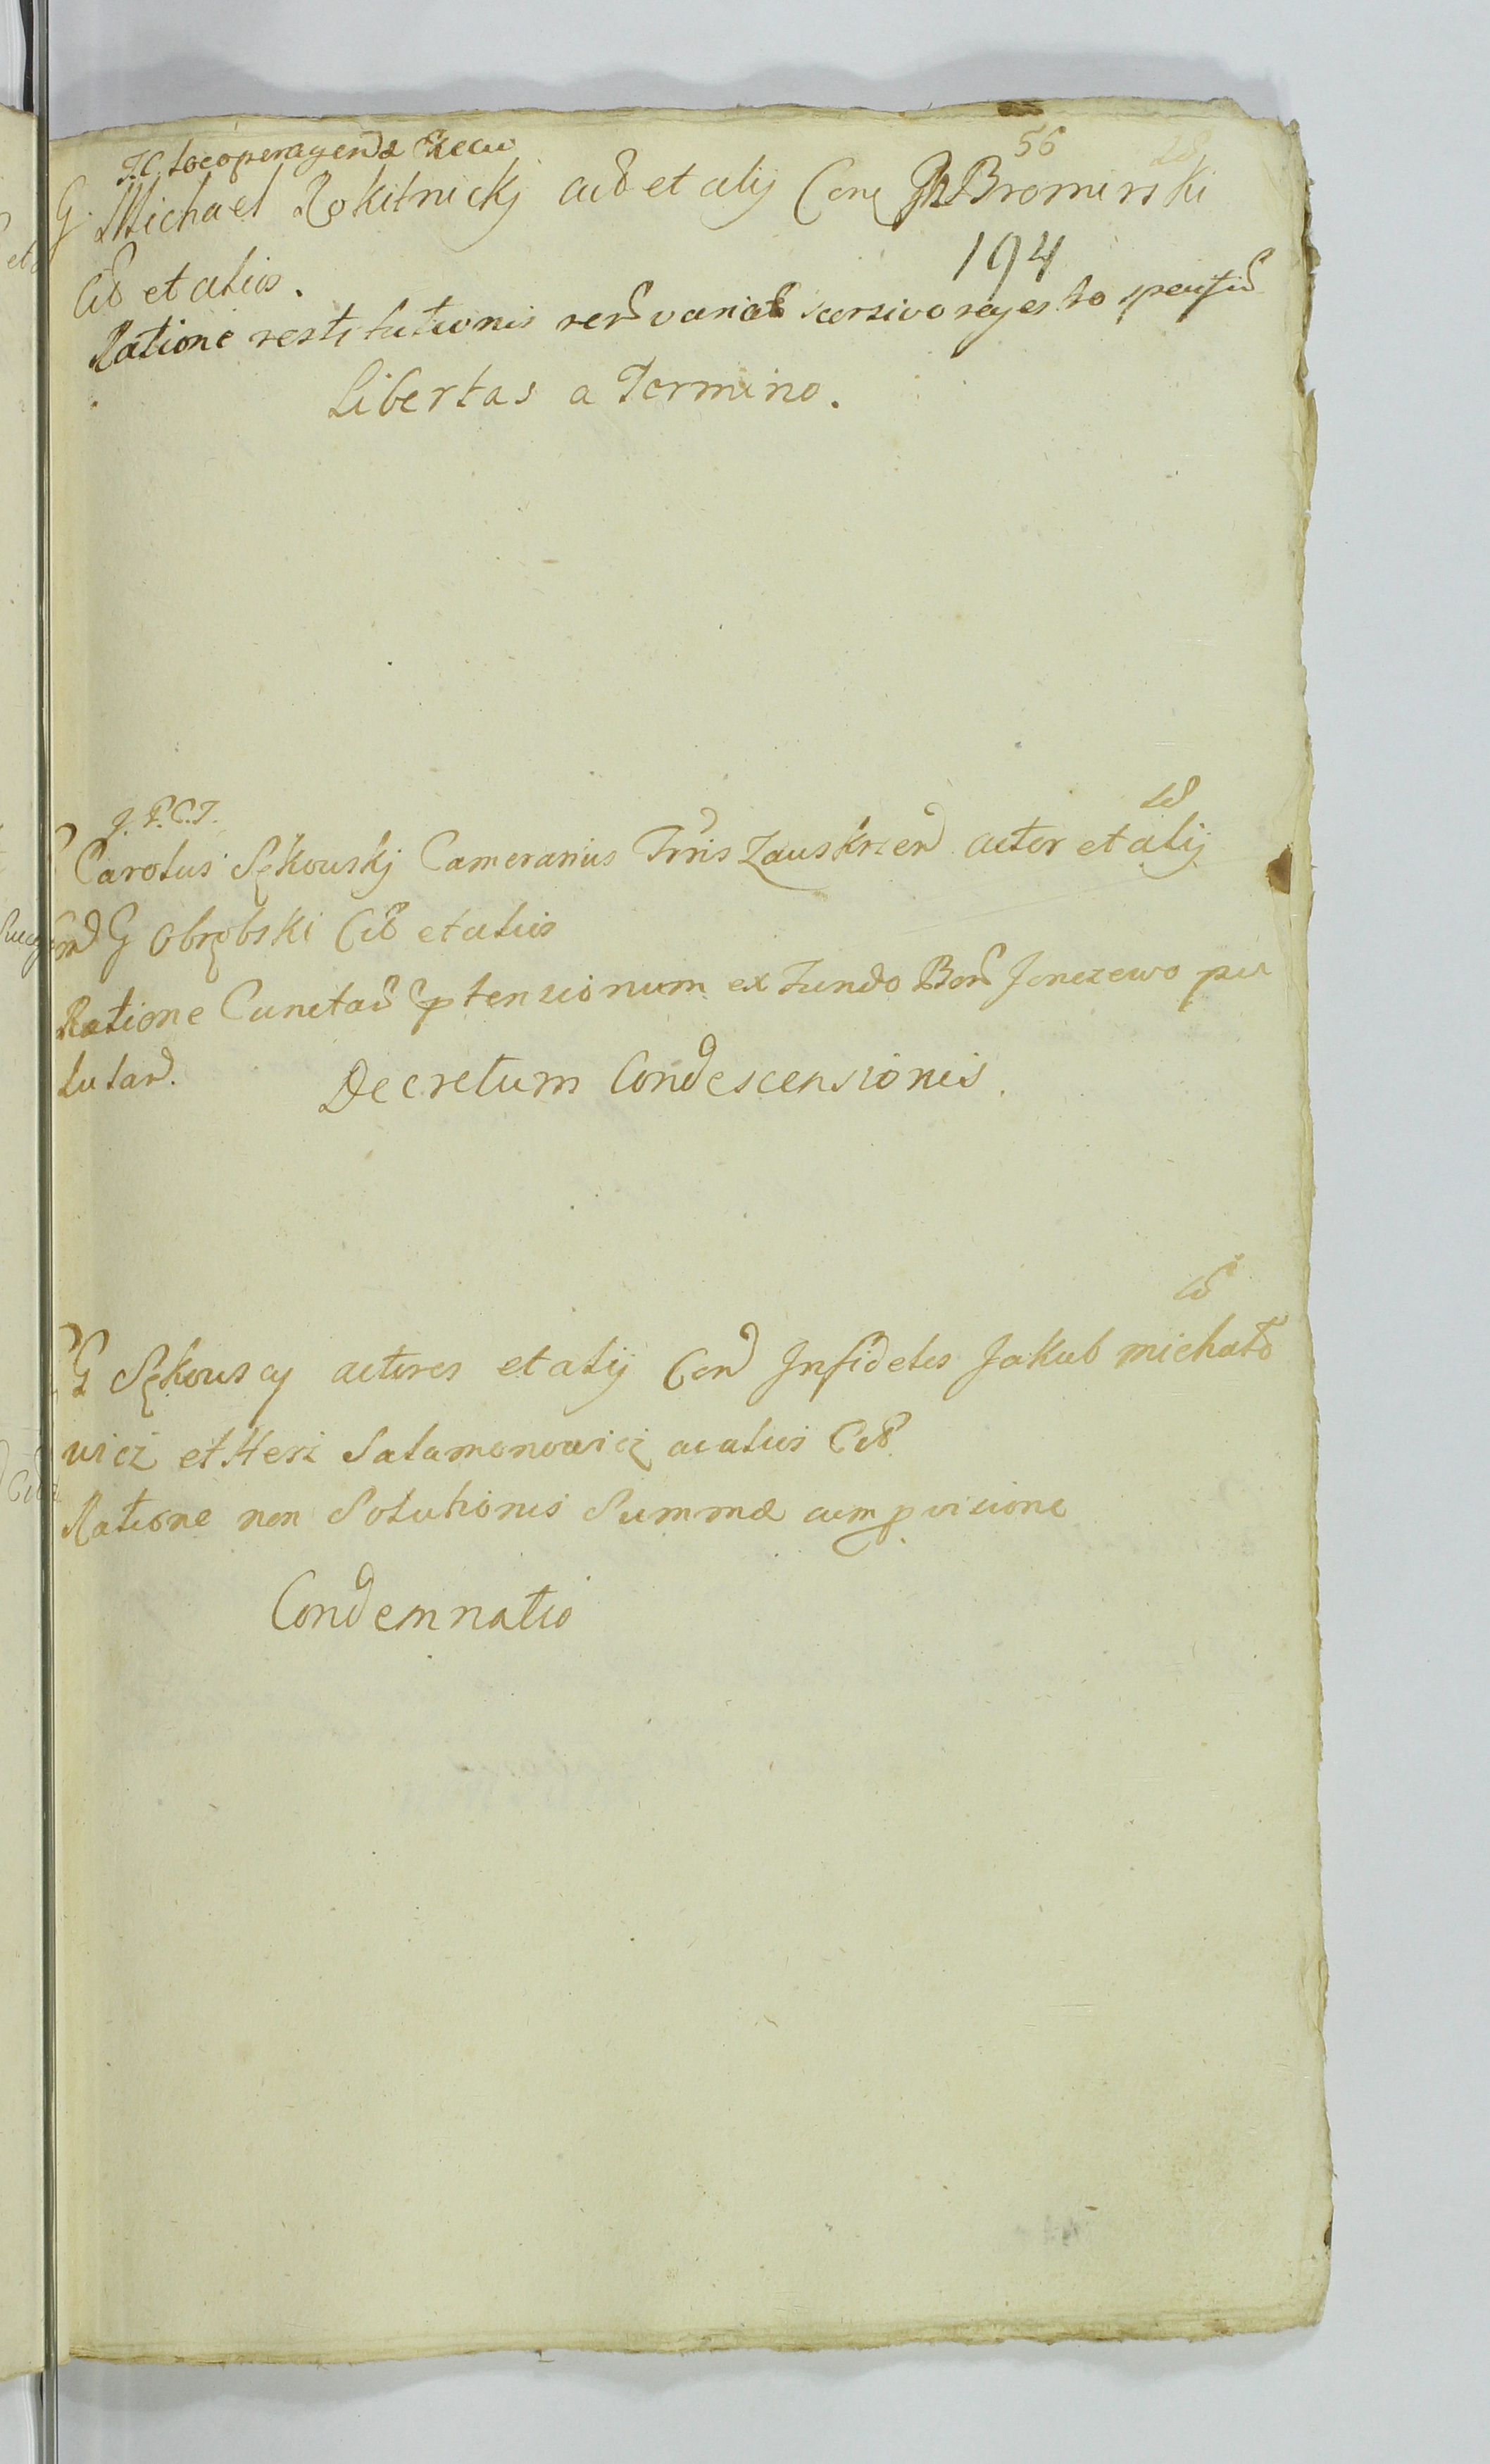 56
T.C. loco peragenda Execu
G. Michael Rokitnicky act et alij Cone GR Bromirski
Cit et alios.
194
Ratione restitutionis rer variar seorsivo regestro
Libertas a Termino.
J. P. C. T.
Carolus Sękowskj Camerarius Trris Zauskrzen actor et alij
G Obrębski Cit et alios
Ratione Cunctar ptensionum ex Fundo Bonr Jonczewo pu
lular.
Decretum Condescensionis.
G Sękowscy actores et alij Con Infideles Jakub michało
wicz et Herz Salamonowicz ac alios Cit
Ratione non Solutionis Summæ cum pvisione
Condemnatio